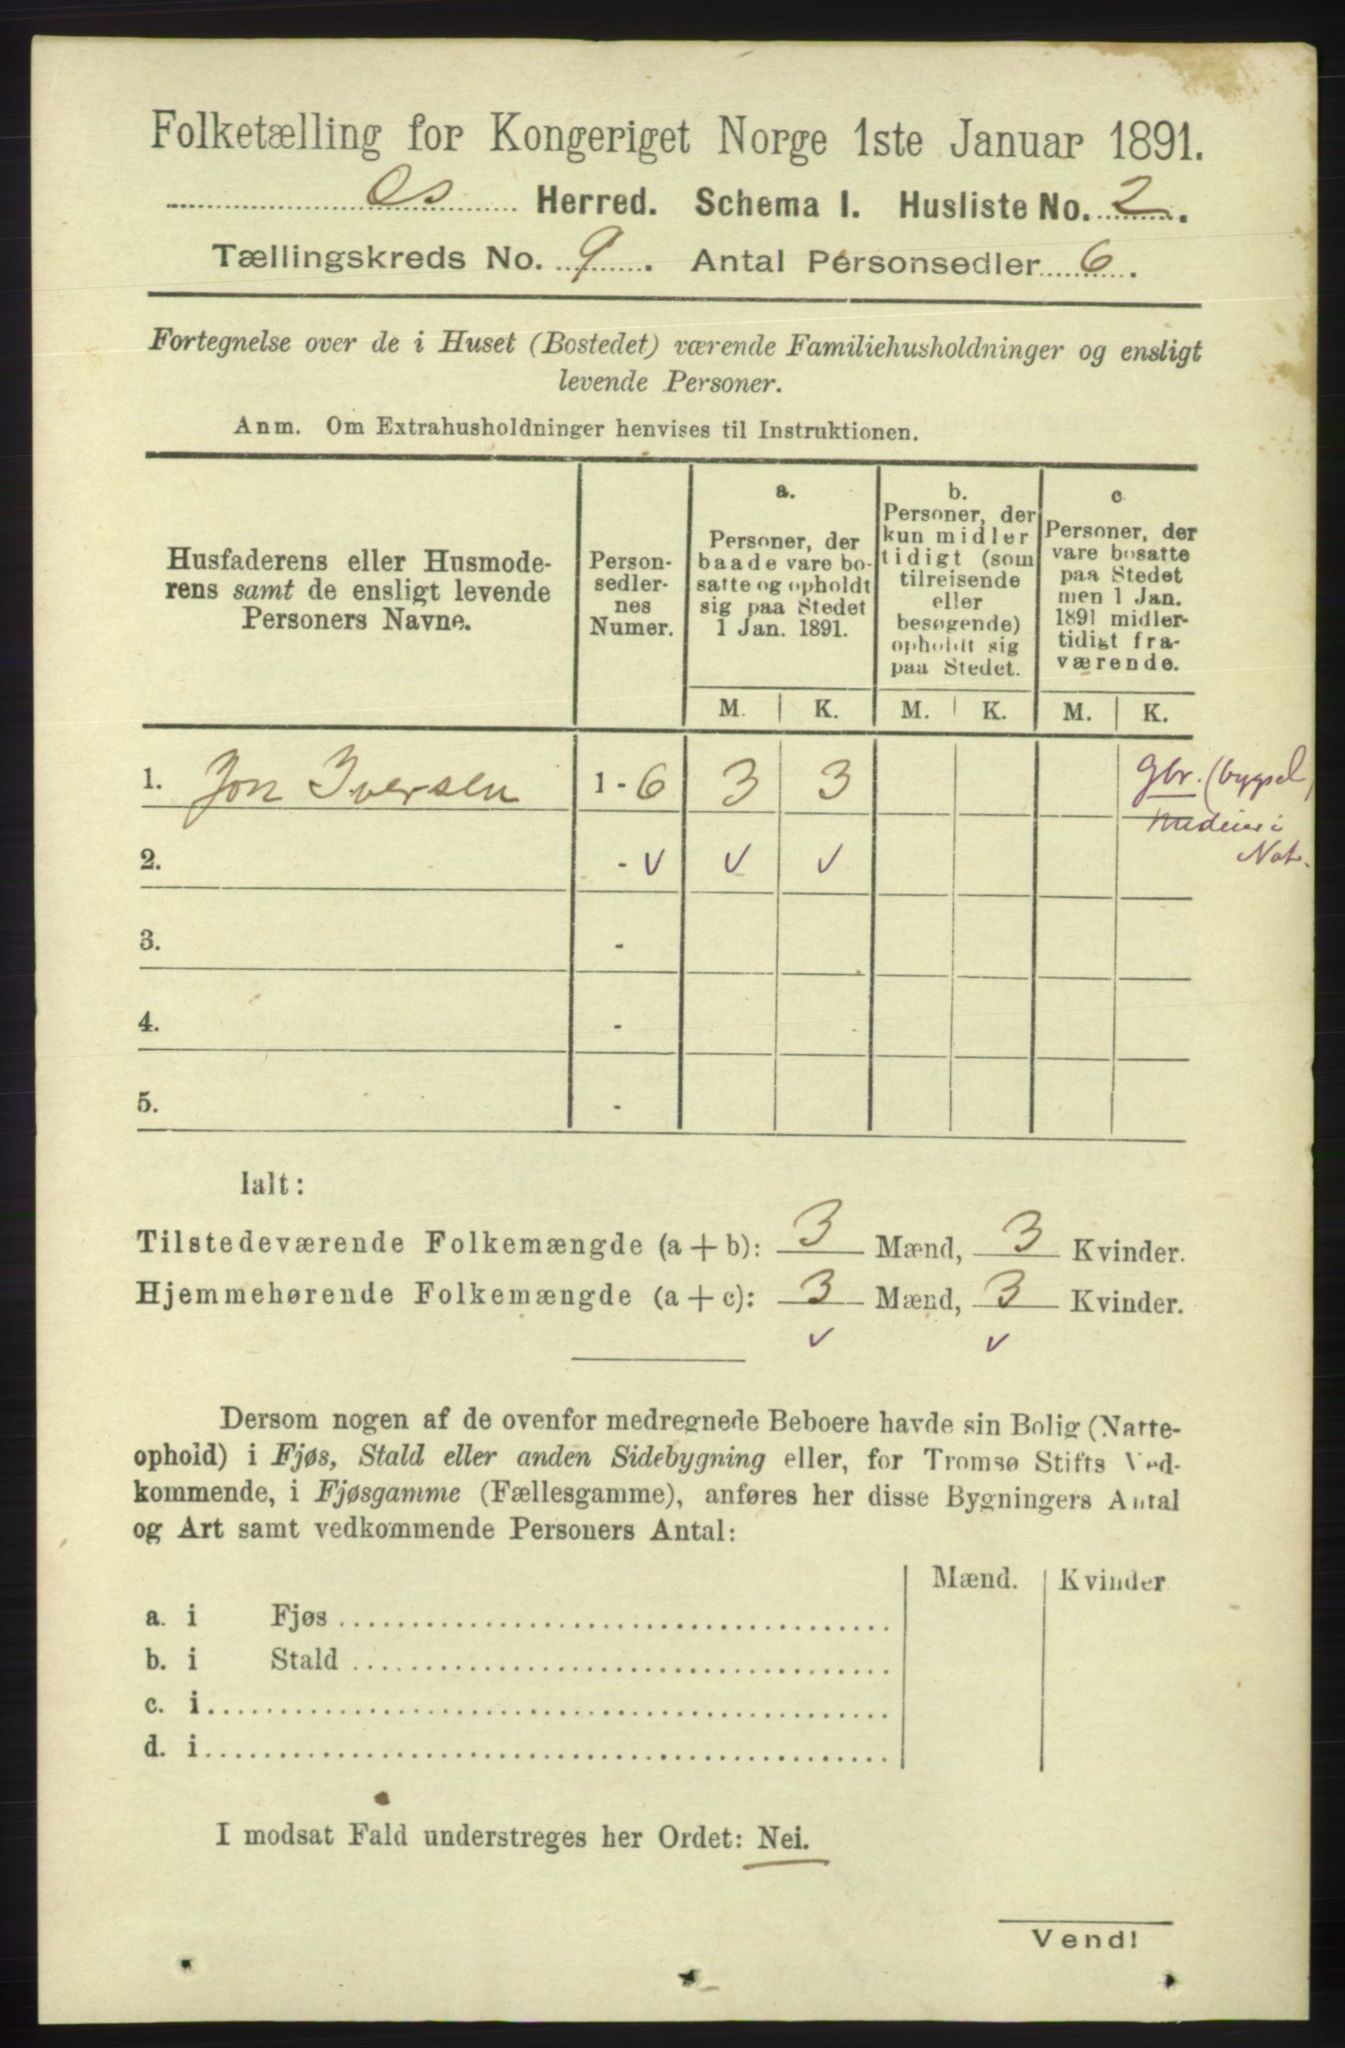 Folketælling for Kongeriget Norge 1ste Januar 1891.
Os Herred. Schema I. Husliste No. 2.
Tællingskreds No. 9. Antal Personsedler 6.
Fortegnelse over de i Huset (Bostedet) værende Familiehusholdninger og ensligt
levende Personer.
Anm. Om Extrahusholdninger henvises til Instruktionen.
Husfaderens eller Husmode-
rens samt de ensligt levende
Personers Navne.
Person-
sedler-
nes
Numer.
a.
Personer, der
baade vare bo-
satte og opholdt
sig paa Stedet
1 Jan. 1891.
b.
Personer, der
kun midler
tidigt (som
tilreisende
eller
besøgende)
opholdt sig
paa Stedet.
c
Personer, der
vare bosatte
paa Stedet
men 1 Jan.
1891 midler-
tidigt fra-
værende.
M. K. M. K. M. K.
1. Jon Iversen 1 - 6 3 3 Gbr. (bygsel)
2. - v v v Not.
3. -
4. -
5. -
Ialt:
Tilstedeværende Folkemængde (a + b): 3 Mænd, 3 Kvinder.
Hjemmehørende Folkemængde (a + c): 3 Mænd, 3 Kvinder.
v v
Dersom nogen af de ovenfor medregnede Beboere havde sin Bolig (Natte-
ophold) i Fjøs, Stald eller anden Sidebygning eller, for Tromsø Stifts Ved-
kommende, i Fjøsgamme (Fællesgamme), anføres her disse Bygningers Antal
og Art samt vedkommende Personers Antal:
Mænd. Kvinder
a. i Fjøs
b. i Stald
c. i
d. i
I modsat Fald understreges her Ordet: Nei.
Vend!